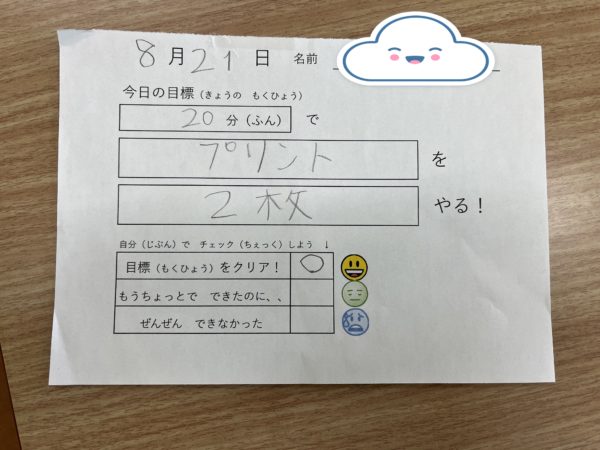 8月21日 名前
今日の目標(きょうの もくひょう)
20分(ふん)で
プリントを
2枚やる！
自分(じぶん)で チェック(ちぇっく)しよう ↓
目標(もくひょう)をクリア！ ○
もうちょっとで できたのに、、
ぜんぜん できなかった